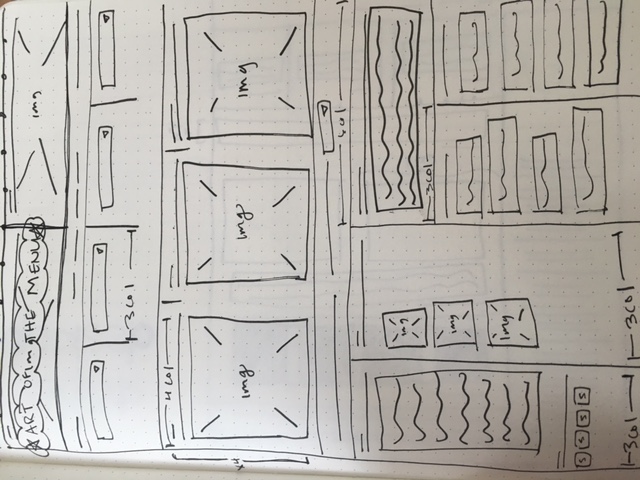 ART OF img THE MENU
img
3 col
4 col
x4
img img img
6 col
img
3 col
img
img
S S S S
3 col 3 col